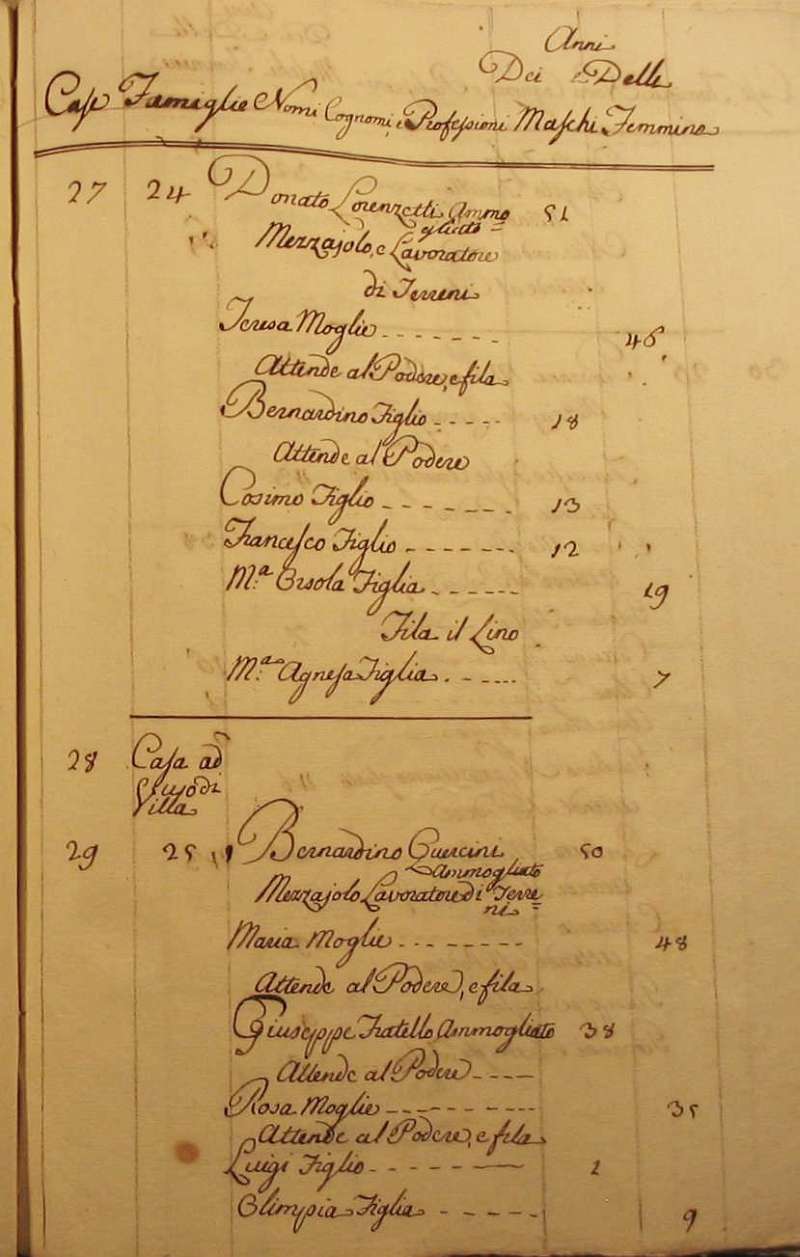 Anni
Dei Delle
Case Famiglie Nomi Cognomi, e Professioni Maschi Femmine
27 24 Donato Lorenzetti Ammo 51
gliato =
Mezzajolo, e Lavoratore
di Terreni
Teresa Moglie 46
Attende al Podere, e fila
Bernardino Figlio 18
Attende al Podere
Cosimo Figlio 13
Francesco Figlio 12
M.ª Orsola Figlia 19
Fila il Lino
M.ª Agnesa Figlia 7
28 Casa ad
uso di
Villa
29 25 Bernardino Guercini 50
Ammogliato
Mezzajolo Lavoratore di Terre
ni =
Maria Moglie 48
Attende al Podere, e fila
Giuseppe Fratello Ammogliato 38
Attende al Podere
Rosa Moglie 35
Attende al Podere, e fila
Luigi Figlio 1
Olimpia Figlia 9